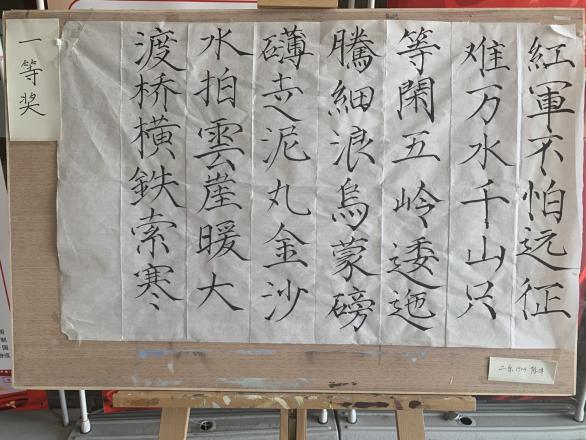 紅軍不怕远征
难万水千山只
等閑五岭逶迤
騰細浪烏蒙磅
礴走泥丸金沙
水拍雲崖暖大
渡桥橫鉄索寒
一等奖